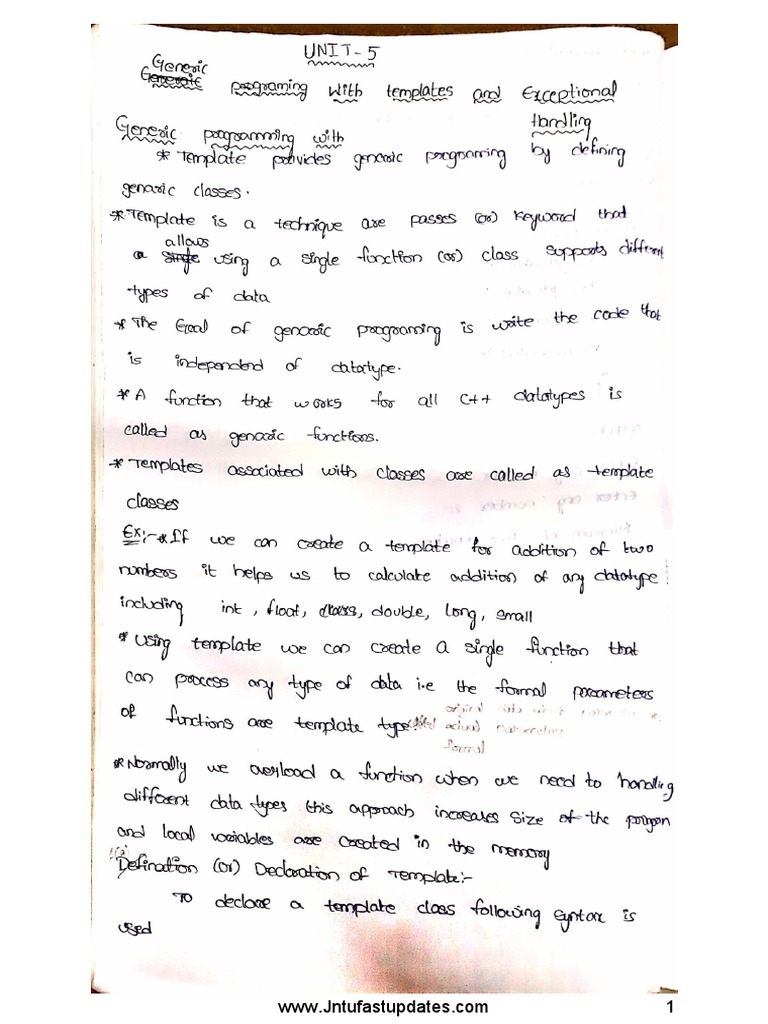 UNIT-5
Generic
programing with templates and Exceptional
Handling
Generic programming with
* Template provides genaric programing by defining
genaric classes.
* Template is a technique are passes (or) keyword that
allows
a using a single function (or) class supports different
types of data
* The Goal of genaric programing is write the code that
is independend of datatype.
* A function that works for all C++ datatypes is
called as genaric functions.
* Templates associated with classes are called as template
classes
Ex:- * If we can create a template for addition of two
numbers it helps us to calculate addition of any datatype
including int, float, class, double, long, small
* Using template we can create a single function that
can process any type of data i.e the formal parameters
of functions are template type.
formal
* Normally we overload a function when we need to handling
different data types this approach increases size of the program
and local variables are created in the memory
Defination (or) Declaration of Template:-
To declare a template class following syntax is
used
www.Jntufastupdates.com 1